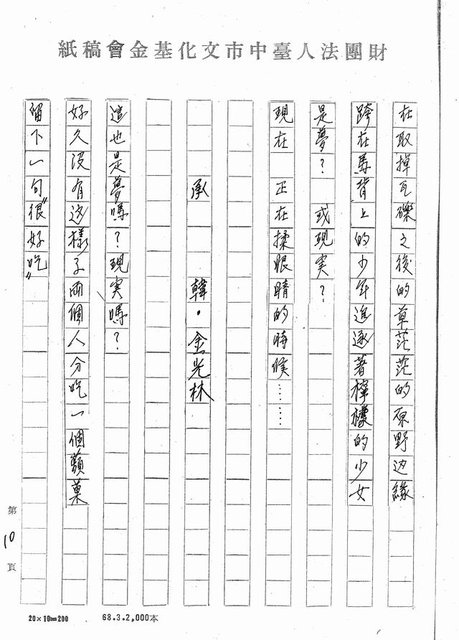 財團法人臺中市文化基金會稿紙
在取掉瓦礫之後的草茫茫的原野边緣
跨在馬背上的少年追逐著檸檬的少女
是夢？　或現実？
現在　正在揉眼睛的時候……
承　韓・金光林
這也是夢嗎？現実嗎？
好久沒有這樣子兩個人分吃一個蘋菓
留下一句“很好吃”
第10頁
20×10=200
68.3.2,000本